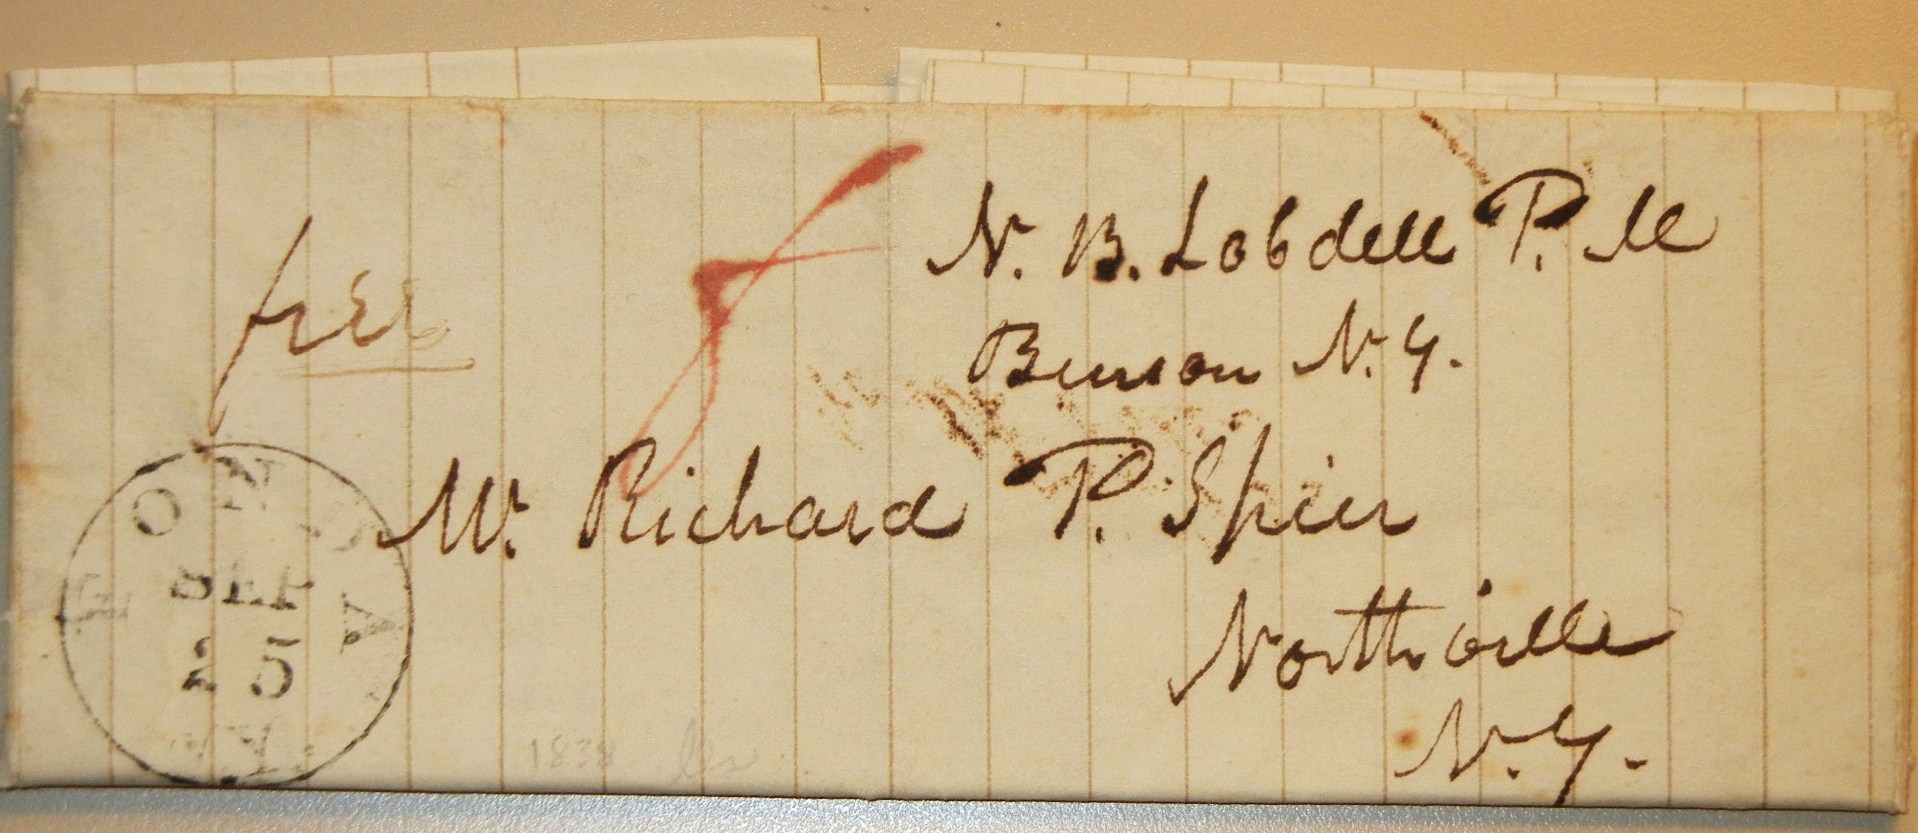 N. B. Lobdell P. M
Benson N. Y.
free
Mr. Richard P. Spier
Northville
N. Y.
FONDA
SEP
25
N.Y.
1838